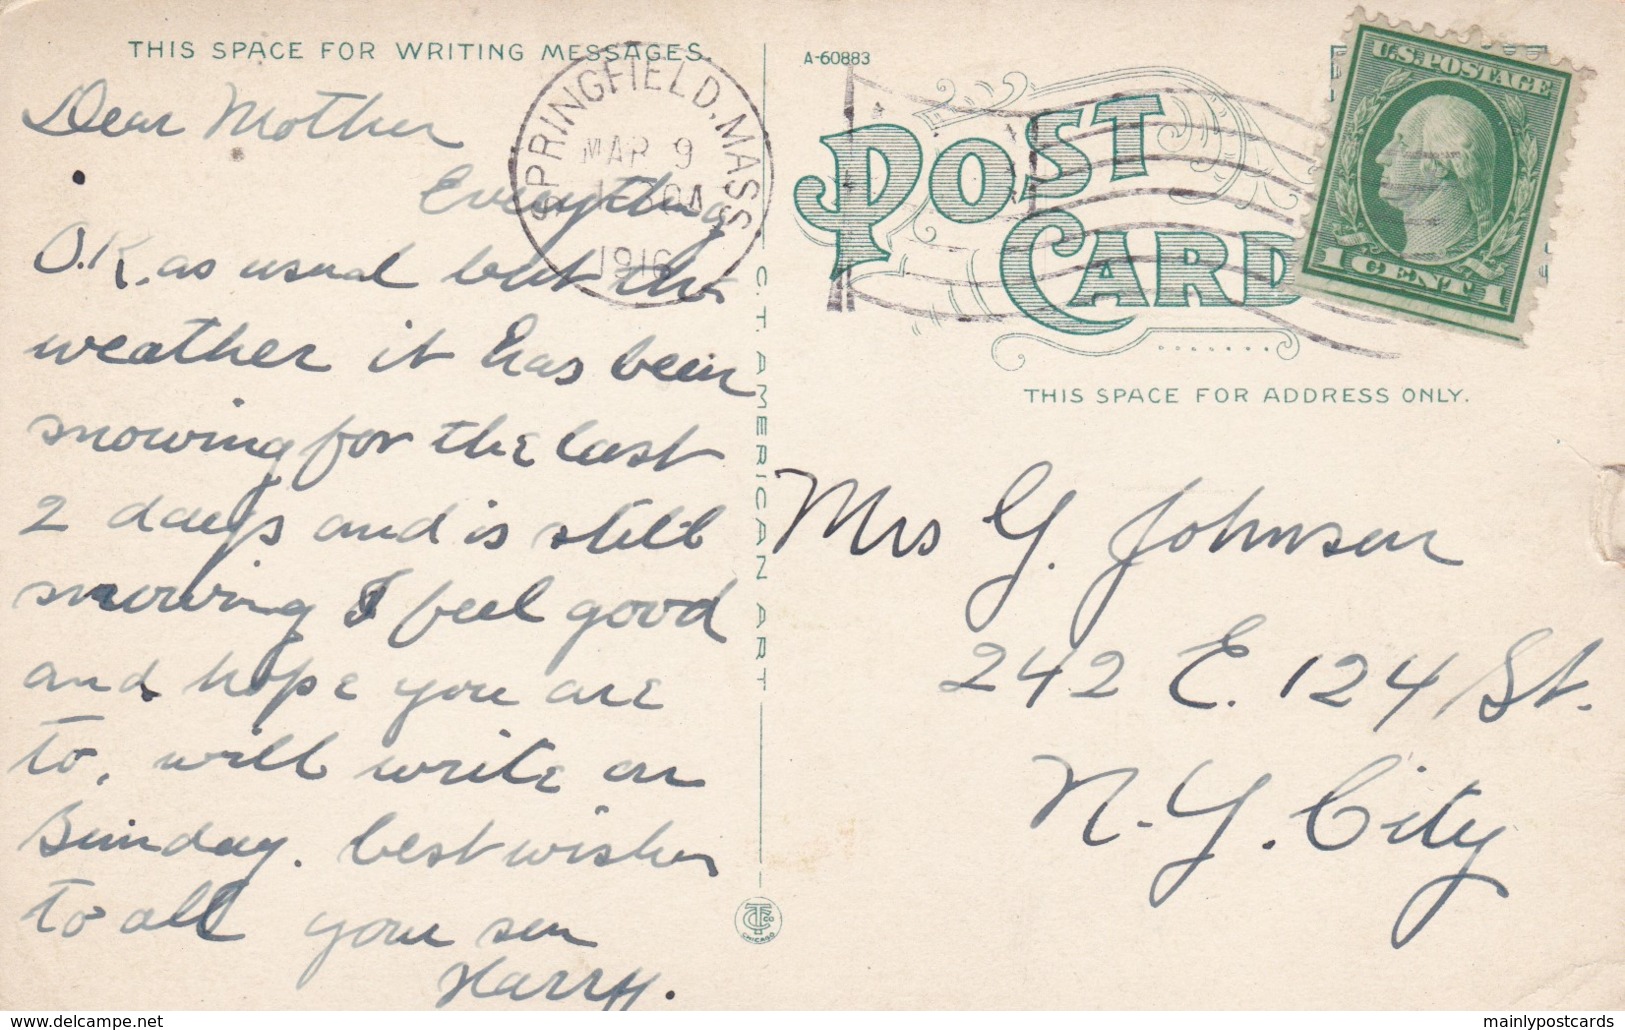 THIS SPACE FOR WRITING MESSAGES
Dear Mother
Everything
O.K. as usual but the
weather it has been
snowing for the last
2 days and is still
snowing I feel good
and hope you are
to, will write on
Sunday. best wishes
to all your son
Harry.
SPRINGFIELD, MASS
MAR 9
1916
C. T. AMERICAN ART
CT CO
CHICAGO
A-60883
POST
CARD
U.S. POSTAGE
1 CENT 1
THIS SPACE FOR ADDRESS ONLY.
Mrs G. Johnson
242 E. 124 St.
N. Y. City
www.delcampe.net
mainlypostcards